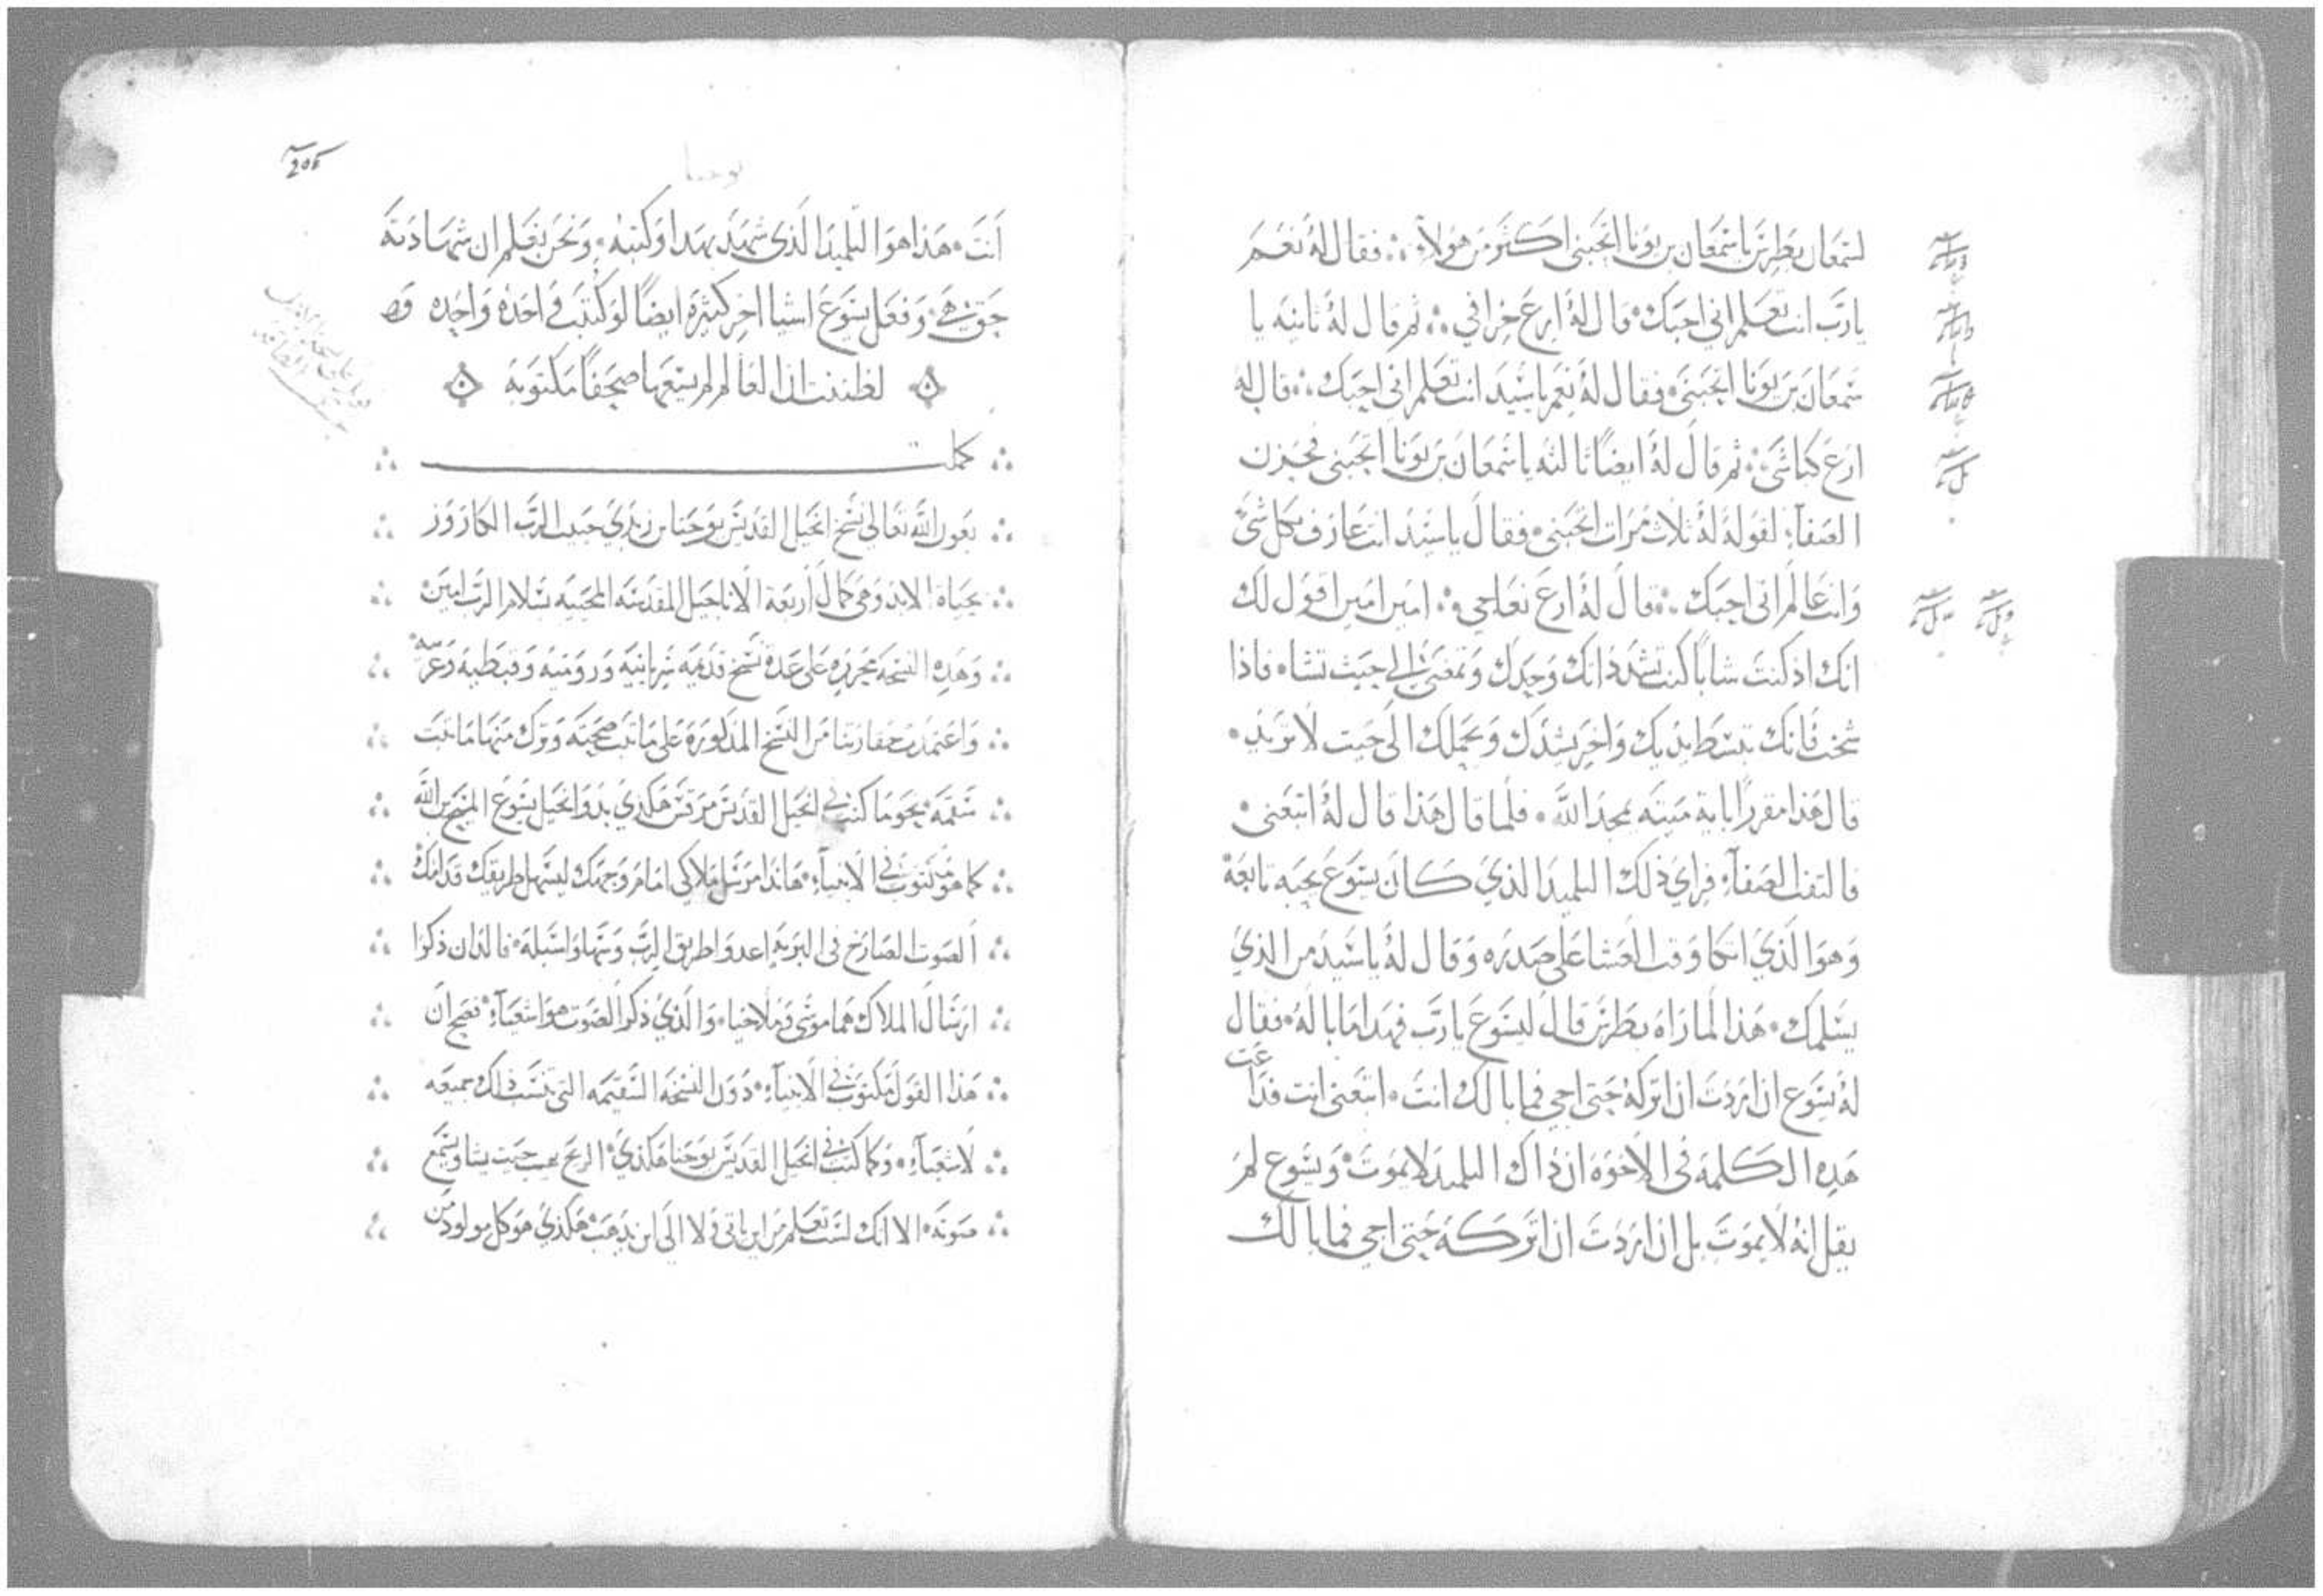 لشمعان بطرس ياشمعان بن يونا اتحبني اكثر من هولاء ፧ فقال له نعم
يارب انت تعلم اني احبك قال له ارع خرافي ፧ ثم قال له ثانيه يا
شمعان بن يونا اتحبني فقال له نعم ياسيد انت تعلم اني احبك ፧ قال له
ارع كباشي ፧ ثم قال له ايضًا ثالثه ياشمعان بن يونا اتحبني فحزن
الصفاء لقوله له ثلاث مرات اتحبني فقال ياسيد انت عارف بكل شي
وانت عالم اني احبك ፧ قال له ارع نعاجي امين امين اقول لك
انك اذ كنت شابًا كنت تشدد ذاتك وحدك وتمضي الي حيث تشاء فاذا
شخت فانك تبسط يديك واخر يشدك ويحملك الي حيت لا تريد
قال هذا مقررًا باية ميته يمجد الله فلما قال هذا قال له اتبعني
فالتفت الصفاء فراي ذلك التلميذ الذي كان يسوع يحبه تابعه
وهو الذي اتكا وقت العشا علي صدره وقال له ياسيد من الذي
يسلمك هذا لما راه بطرس قال ليسوع يارب فهدا ما باله فقال
له يسوع ان اردت ان اتركه حتي اجي فما بالك انت اتبعني انت فذاعت
هده الكلمة في الاخوه ان ذاك التلميذ لايموت ويسوع لم
يقل انه لايموت بل ان اردت ان اتركه حتي اجي فما بالك
يوحنا
انت هذا هو التلميذ الذي شهد بهدا وكتبه ونحن نعلم ان شهادته
حق هي وفعل يسوع اشيا اخر كثيرة ايضًا لو كتبت واحده واحده
لظننت ان العالم لم يسعها صحفًا مكتوبة
كملت
بعون الله تعالي نسخ انجيل القديس يوحنا بن زبدي حبيب الرب الكاروز
بحياة الابد وهي كمال اربعة الاناجيل المقدسه المحييه بسلام الرب امين
وهده النسخه محرره علي عدة نسخ قديمه سريانيه ورومية وقبطيه وعربيه
واعتمدت مقاربتنا من النسخ المذكورة علي ما ثبت صحته وترك منها ما ثبت
سقمه نحو ما كتب في انجيل القديس مرقس هكذي بدو انجيل يسوع المسيح بن الله
كما هو مكتوب في الانبياء هاندا مرسل ملاكي امام وجهك ليسهل طريقك قدامك
الصوت الصارخ في البريه اعدوا طريق الرب وسهلوا سبله فاللذان ذكرا
ارسال الملاك هما موسي وملاخيا والذي ذكر الصوت هو اشعياء فصح ان
هذا القول مكتوب في الانبياء دون النسخه السقيمه التي تنسب ذلك جميعه
لاشعياء وكما كتب في انجيل القديس يوحنا هكذي الريح تهب حيت يشا ويسمع
صوته الا انك لست تعلم من اين ياتي ولا الي اين يذهب هكذي هو كل مولود من